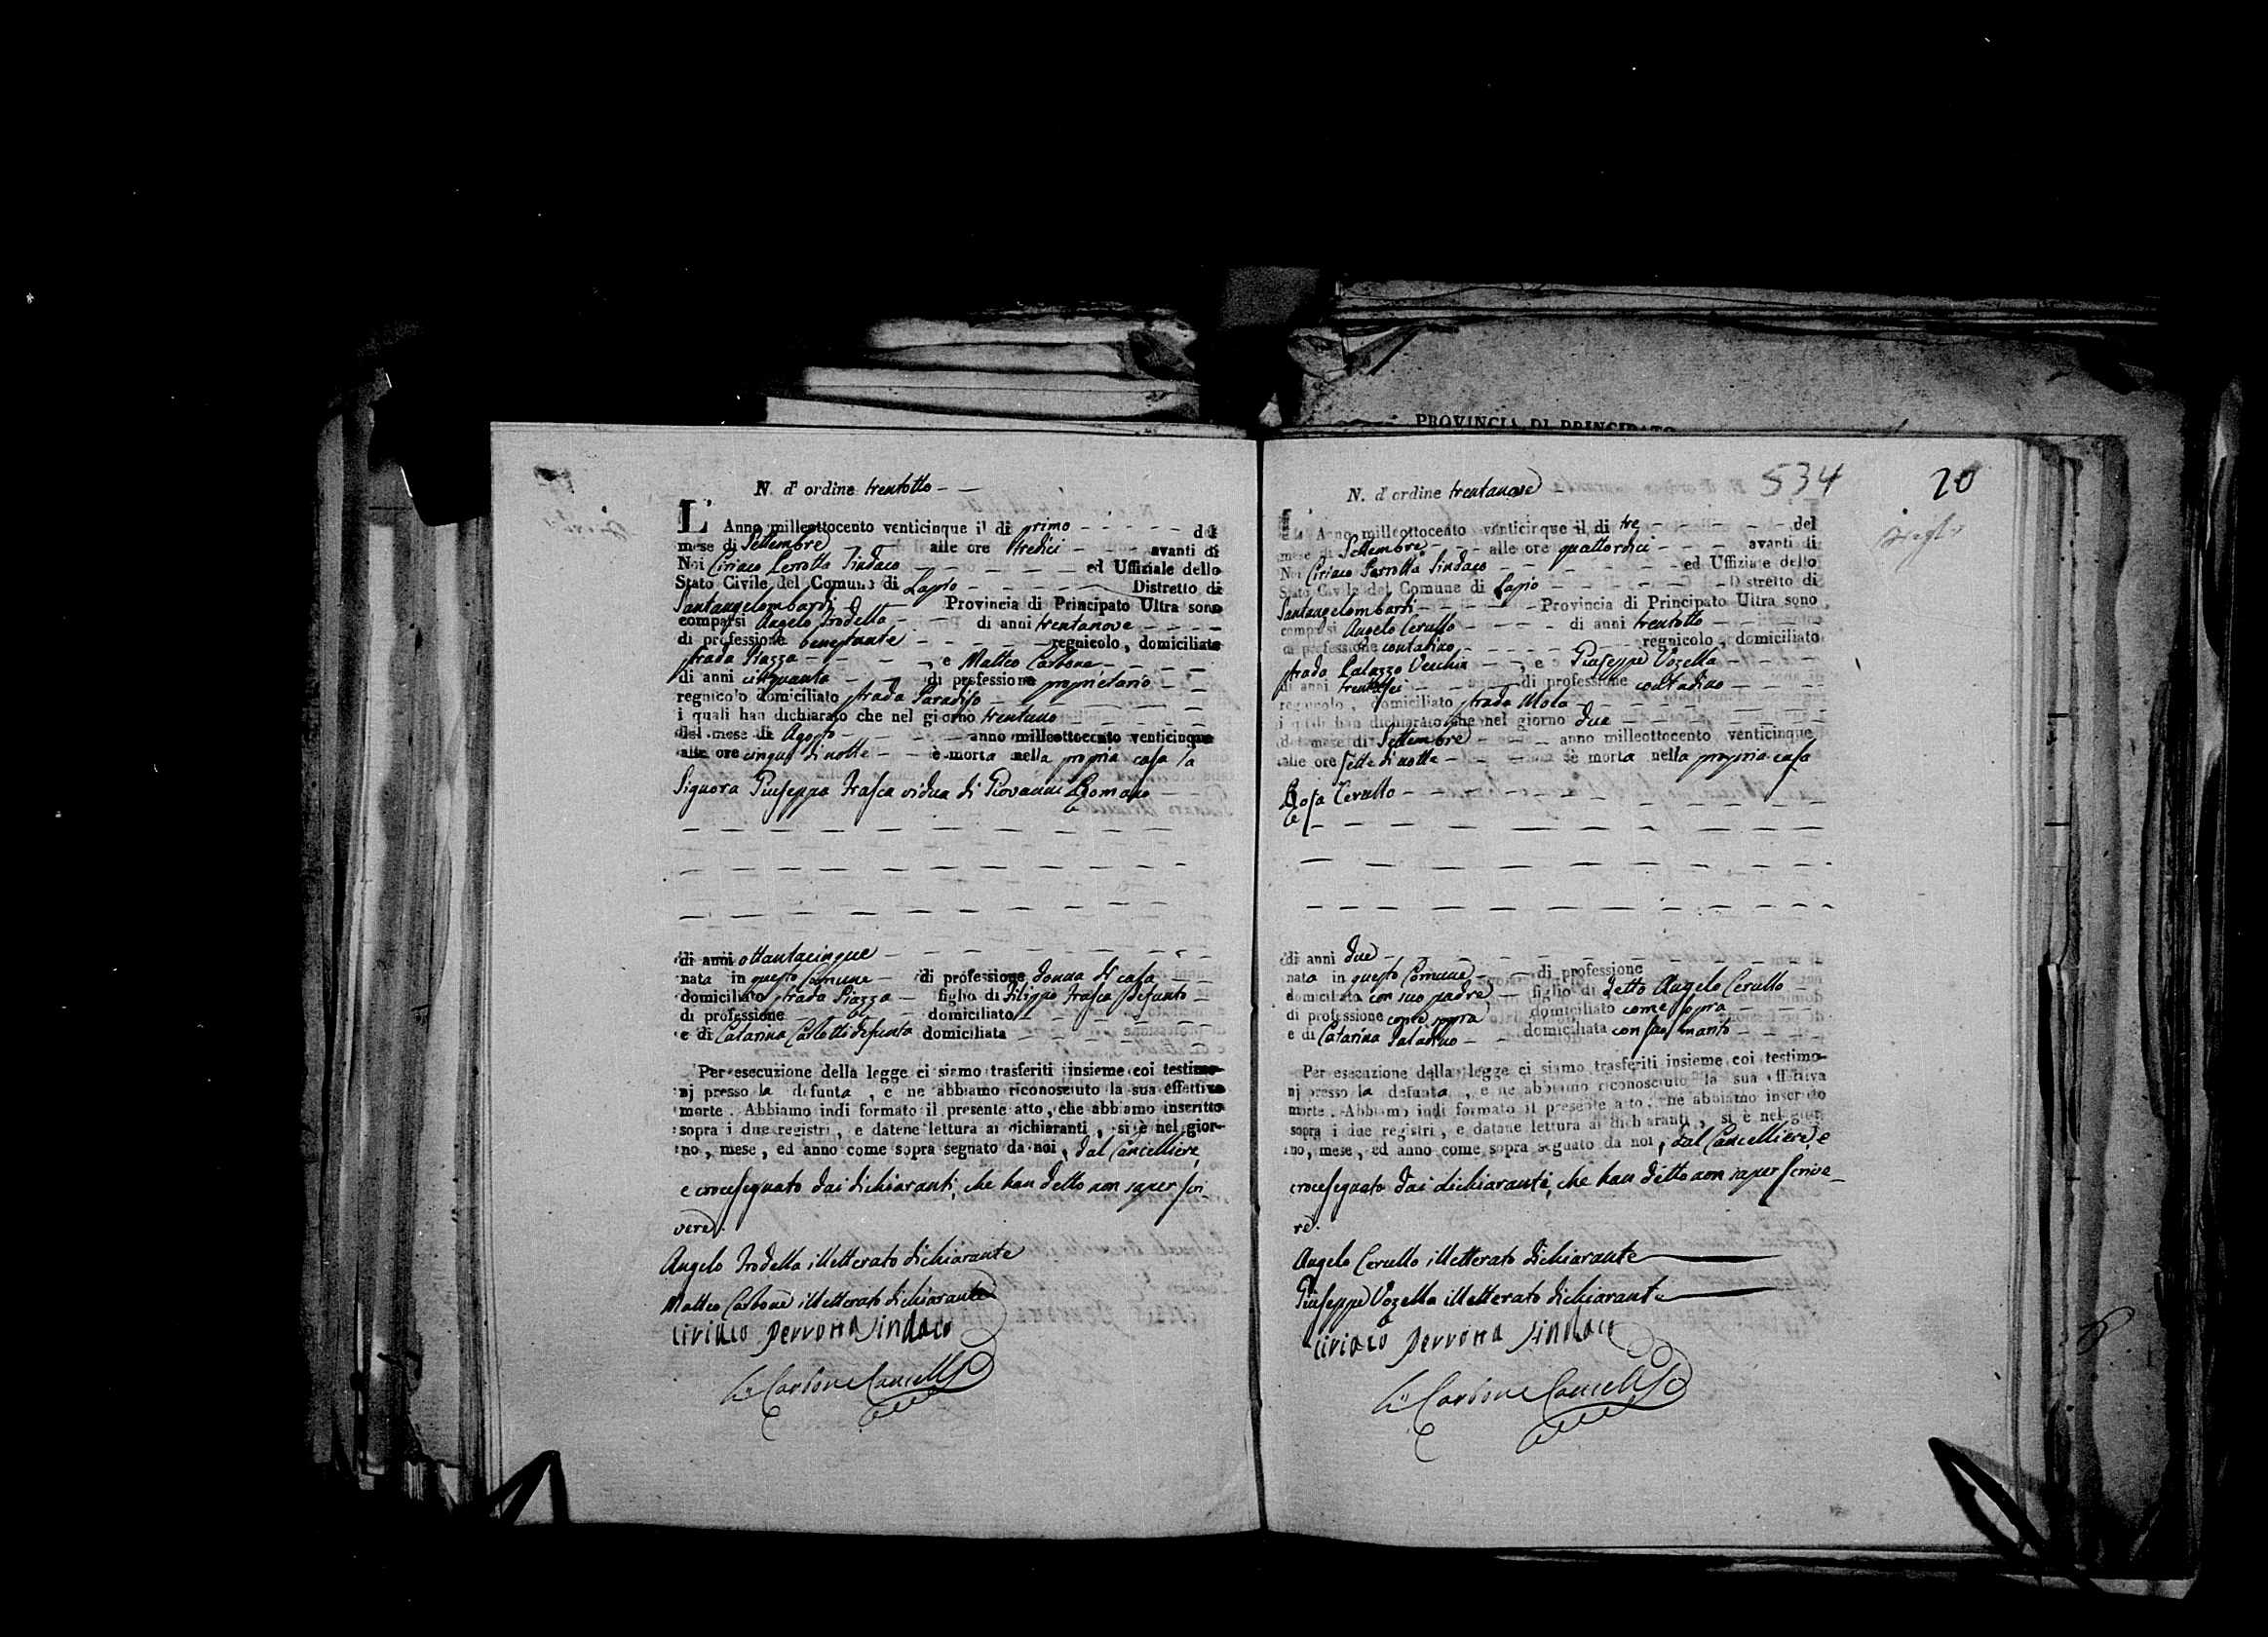 PROVINCIA DI PRINCIPATO
N. d' ordine trentotto
L' Anno milleottocento venticinque il di primo del
mese di Settembre alle ore tredici avanti di
Noi Ciriaco Perrotta Sindaco ed Uffiziale dello
Stato Civile del Comune di Lapio Distretto di
Santangelombardi Provincia di Principato Ultra sono
comparsi Angelo Trodella di anni trentanove
di professione benestante regnicolo, domiciliato
strada Piazza, e Matteo Carbone
di anni cinquanta di professione proprietario
regnicolo domiciliato strada Paradiso
i quali han dichiarato che nel giorno trentuno
del mese di Agosto anno milleottocento venticinque
alle ore cinque di notte è morta nella propria casa la
Signora Giuseppa Trasca vidua di Giovanni Romano
di anni ottantacinque
nata in questo Comune di professione donna di casa
domiciliato strada Piazza figlio di Filippo Trasca defunto
di professione domiciliato
e di Catarina defunta domiciliata
Per esecuzione della legge ci siamo trasferiti insieme coi testimo-
nj presso la defunta, e ne abbiamo riconosciuto la sua effettiva
morte. Abbiamo indi formato il presente atto, che abbiamo inscritto
sopra i due registri, e datene lettura ai dichiaranti, si è nel gior-
no, mese, ed anno come sopra segnato da noi, dal Cancelliere,
e crocesegnato dai dichiaranti, che han detto non saper scri-
vere.
Angelo Trodella illetterato dichiarante
Matteo Carbone illetterato dichiarante
Ciriaco Perrotta Sindaco
Carbone Cancell.
534
20
N. d' ordine trentanove
L' Anno milleottocento venticinque il di tre del
mese di Settembre alle ore quattordici avanti di
Noi Ciriaco Perrotta Sindaco ed Uffiziale dello
Stato Civile del Comune di Lapio Distretto di
Santangelombardi Provincia di Principato Ultra sono
comparsi Angelo Cerullo di anni trentotto
di professione contadino regnicolo, domiciliato
strada Palazzo Vecchio, e Giuseppe Vozella
di anni trentasei di professione contadino
regnicolo, domiciliato strada Mola
i quali han dichiarato che nel giorno due
del mese di Settembre anno milleottocento venticinque
alle ore sette di notte è morta nella propria casa
Rosa Cerullo
di anni due
nata in questo Comune di professione
domiciliata con suo padre figlio di detto Angelo Cerullo
di professione come sopra domiciliato come sopra
e di Catarina Paladino domiciliata con suo marito
Per esecuzione della legge ci siamo trasferiti insieme coi testimo-
nj presso la defunta, e ne abbiamo riconosciuto la sua effettiva
morte. Abbiamo indi formato il presente atto, che abbiamo inscritto
sopra i due registri, e datane lettura ai dichiaranti, si è nel gior-
no, mese, ed anno come sopra segnato da noi, dal Cancelliere, e
crocesegnato dai dichiaranti, che han detto non saper scrive-
re.
Angelo Cerullo illetterato dichiarante
Giuseppe Vozella illetterato dichiarante
Ciriaco Perrotta Sindaco
Carbone Cancell.